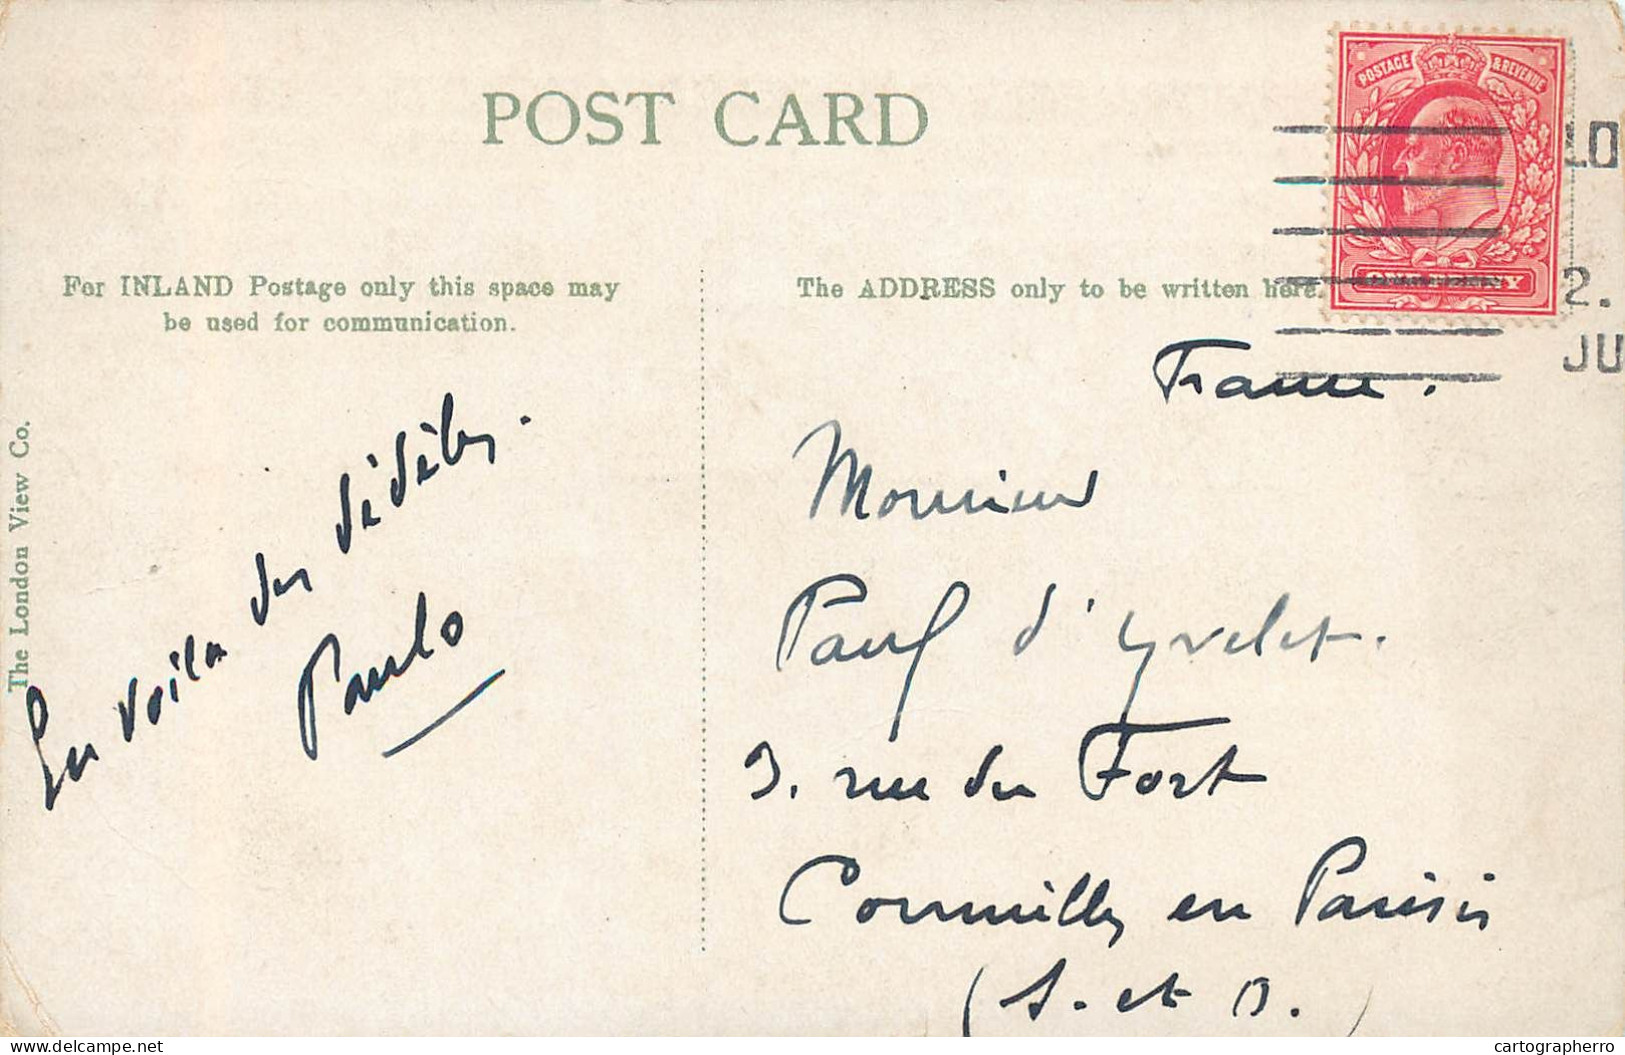 POST CARD
POSTAGE & REVENUE
LO
2.
JU
For INLAND Postage only this space may
be used for communication.
The ADDRESS only to be written here.
The London View Co.
En voila des dédèles.
Paulo
France.
Monsieur
Paul d'Yvelet.
3. rue du Fort
Cormeilles en Parisis
(S. et O.)
delcampe.net
cartographerro